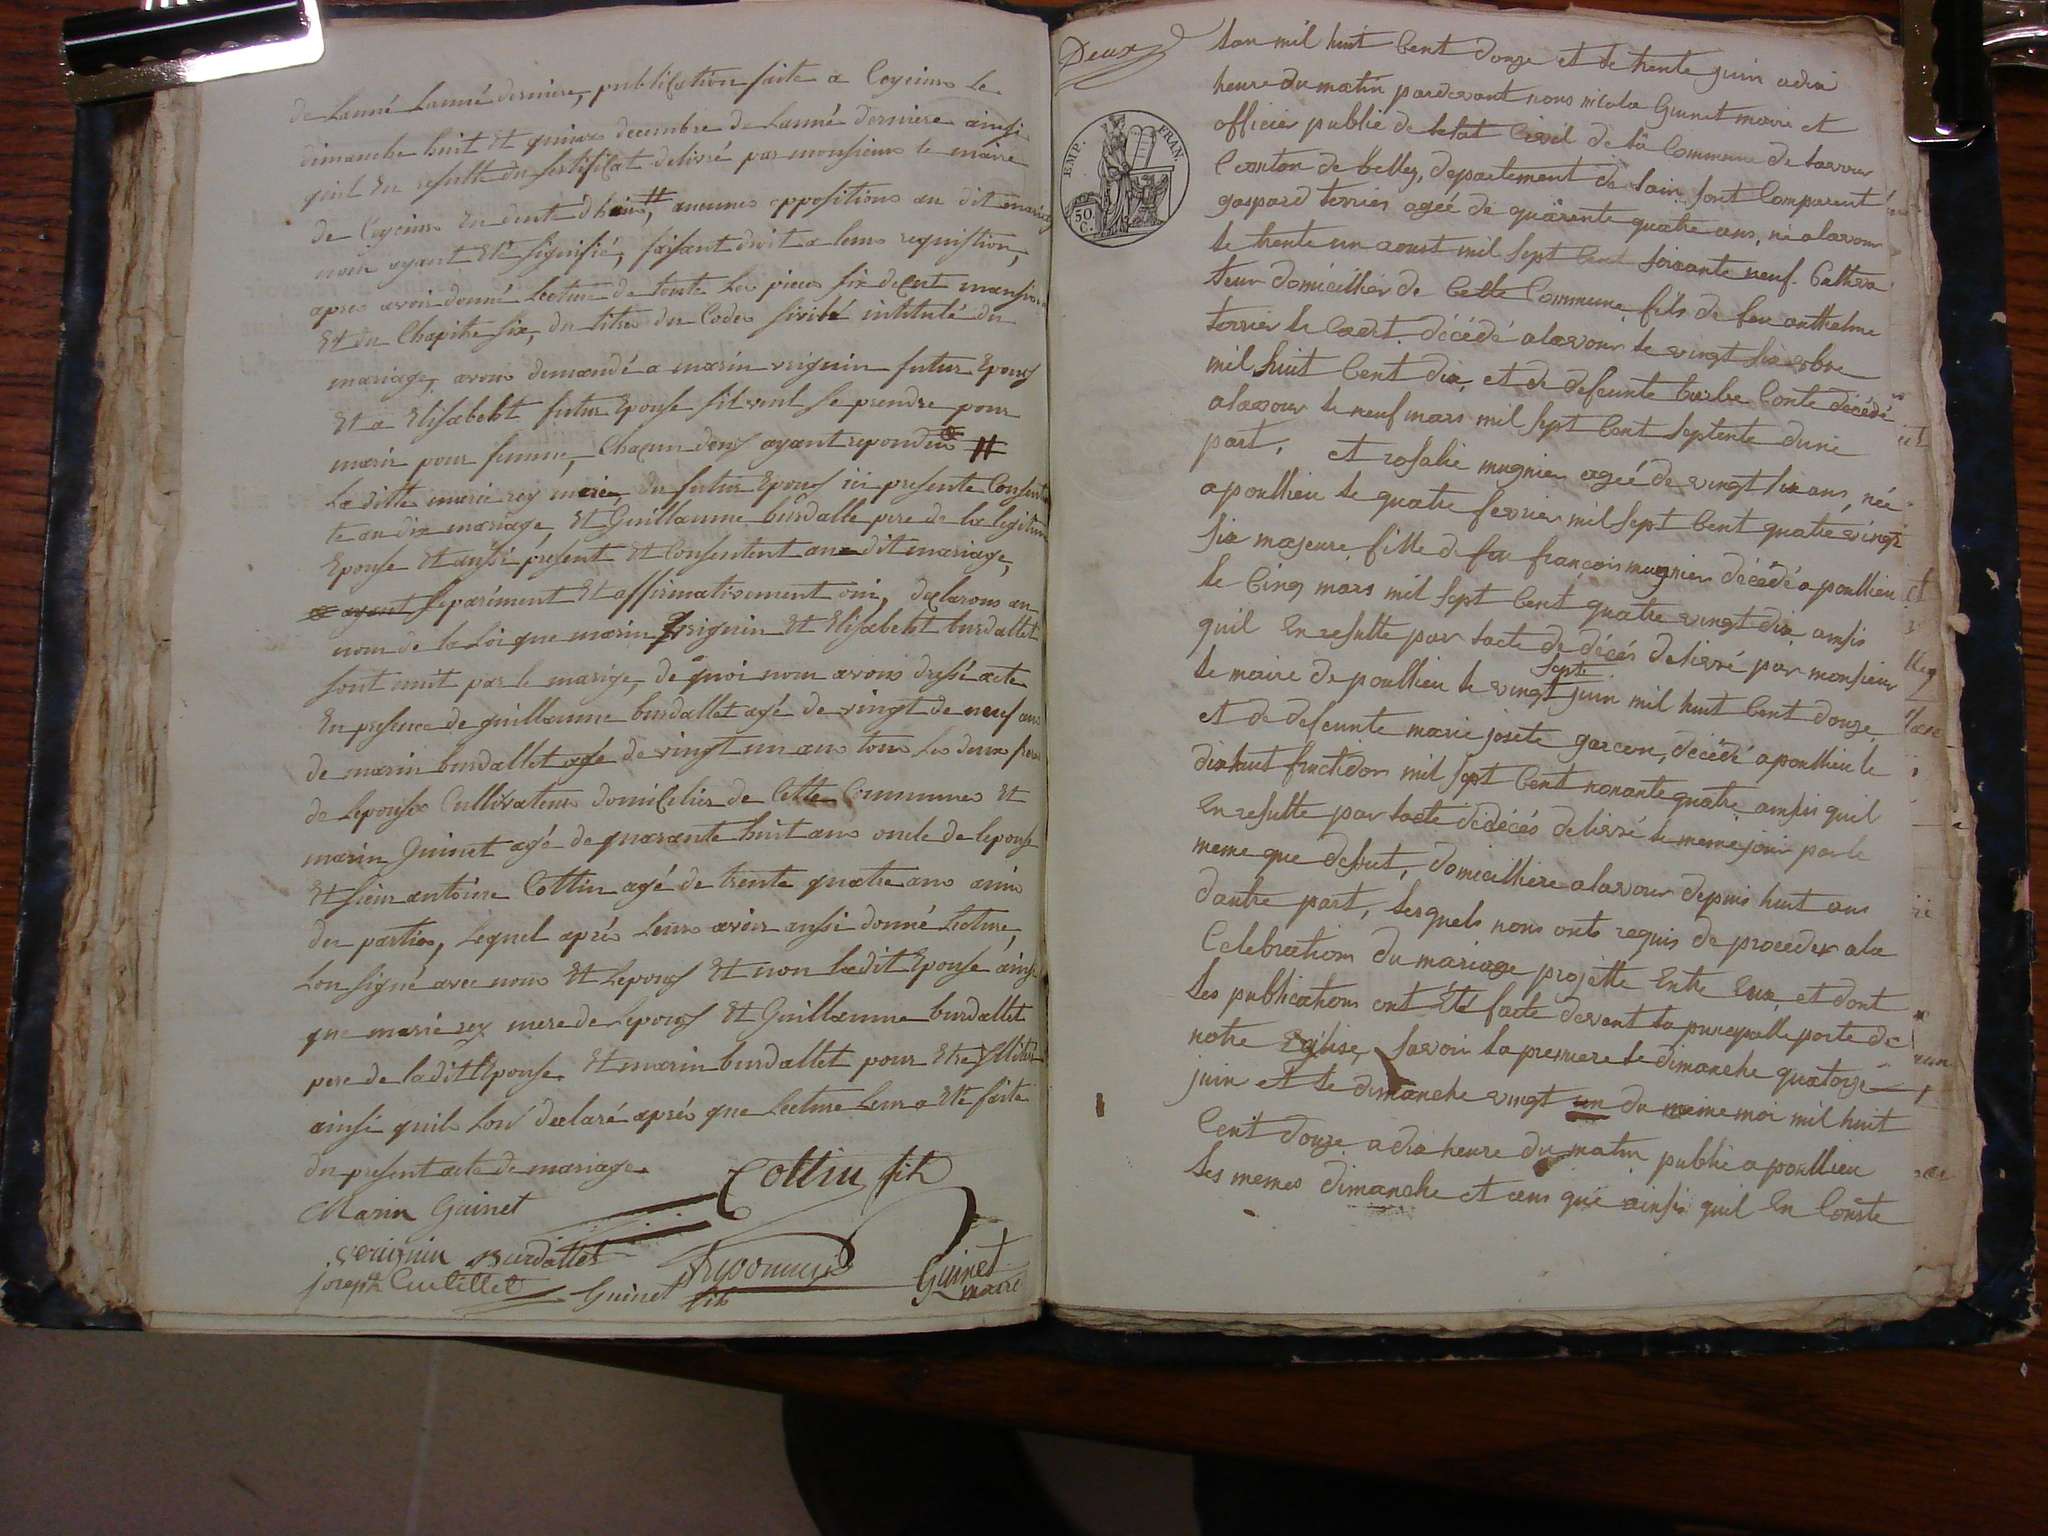 de Lanné Lanné derniere, publication faite a Ceyeirus Le
dimanche huit Et quinze decembre de Lanné derniere ainsi
quil En resulte du sertificat delivré par monsieur le maire
de Ceyeirus En dent dhuin, aucunes oppositions au dit mariag
nous ayant Eté signifié, faisant droit a leur requistion,
apres avoir donné Lecture de toute Les pieces six decut mansion
Et du Chapitre six, du titre du Codes sivile intitulé du
mariage, avons demandé a marin vriguin futur Epous
Et a Elisabeht futur Epouse sil veul se prendre pour
marir pour femme, Chaqun deus ayant repondus #
La ditte marie rey mere du futur Epous ici presente Consent
te au dix mariage, Et Guillaume burdalle pere de la legitime
Epouse Et aussi present Et Consentent au dit mariage,
ayant separiment Et affirmativement oui, declarons au
nom de la Loi que marin Vriguin Et Elisabeht burdallet
sont unit par le marige, de quoi nous avons dressé acte
En presence de guillaume burdallet agé de vingt de neuf ans
de marin burdallet agé de vingt un ans tous Les deux frere
de Lepouse Cultivateur domicilies de Cette Commune Et
marin Guinet agé de quarante huit ans oncle de lepouse
Et sieur antoine Cottin agé de trente quatre ans ami
des parties, Lequel aprés Leurs avoir aussi donné Lecture,
Lon signé avec nous Et Lepous Et non Ladit Epouse ainsi
que marie rey mere de Lepous Et Guillaume burdallet
pere de ladit Epouse Et marin burdallet pour Etre illiteré
ainsi quil Lon declaré aprés que Lecture Leur a Eté faite
du present acte de mariage.
Cottin fils
Marin Guinet
veriguin Burdallet
joseph Curtillet Guinet fils
Guinet maire
Deux
EMP. FRAN.
50 C.
Lan mil huit Cent douze et le trente juin a dix
heure du matin pardevant nous nicola Guinet maire et
officier public de letat Civil de la Commune de Lavour
Canton de belley, departement de Lain sont Comparent
gaspard terrier ageé de quarente quatre ans, né a lavour
le trente un aoust mil sept Cent soixante neuf. Cultiva
teur domicillier de Cette Commune fils de feu anthelme
terrier le Cadet. décédé a lavour le vingt six xbre
mil huit Cent dix, et de defeunte barbe Conte décédé
a lavour le neuf mars mil sept Cent septente dune
part, et rosalie mugnier ageé de vingt six ans, neé
a poullieu le quatre fevrier mil sept Cent quatre vingt
six majeure fille de feu françois mugnier décédé a poullieu
le Cinq mars mil sept Cent quatre vingt dix ainsis
quil En resulte par Lacte de décés delivré par monsieur
le maire de poullieu le vingt sept juin mil huit Cent douze
et de defeunte marie josete garcon, décédé a poullieu le
dixhuit fructidor mil sept Cent nonante quatre ainsis quil
En resulte par Lacte dedécés delivré le meme jour par le
meme que desut, domicilliere a lavour depuis huit ans
dautre part, Lesquels nous onts requis de proceder a la
Celebration du mariage projette Entre Eux, et dont
les publications ont Eté faite devent la principalle porte de
notre Eglise, savoir la premiere le dimanche quatorze
juin et le dimanche vingt un du meme moi mil huit
Cent douze a dix heure du matin publié a poullieu
les memes dimanche et ceus que ainsis quil En Conste